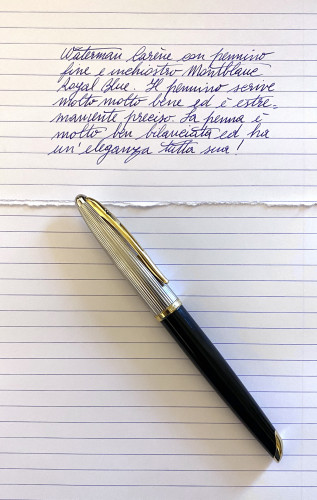 Waterman Carène con pennino
fine e inchiostro Montblanc
Royal Blue. Il pennino scrive
molto molto bene ed è estre-
mamente preciso. La penna è
molto ben bilanciata ed ha
un'eleganza tutta sua!